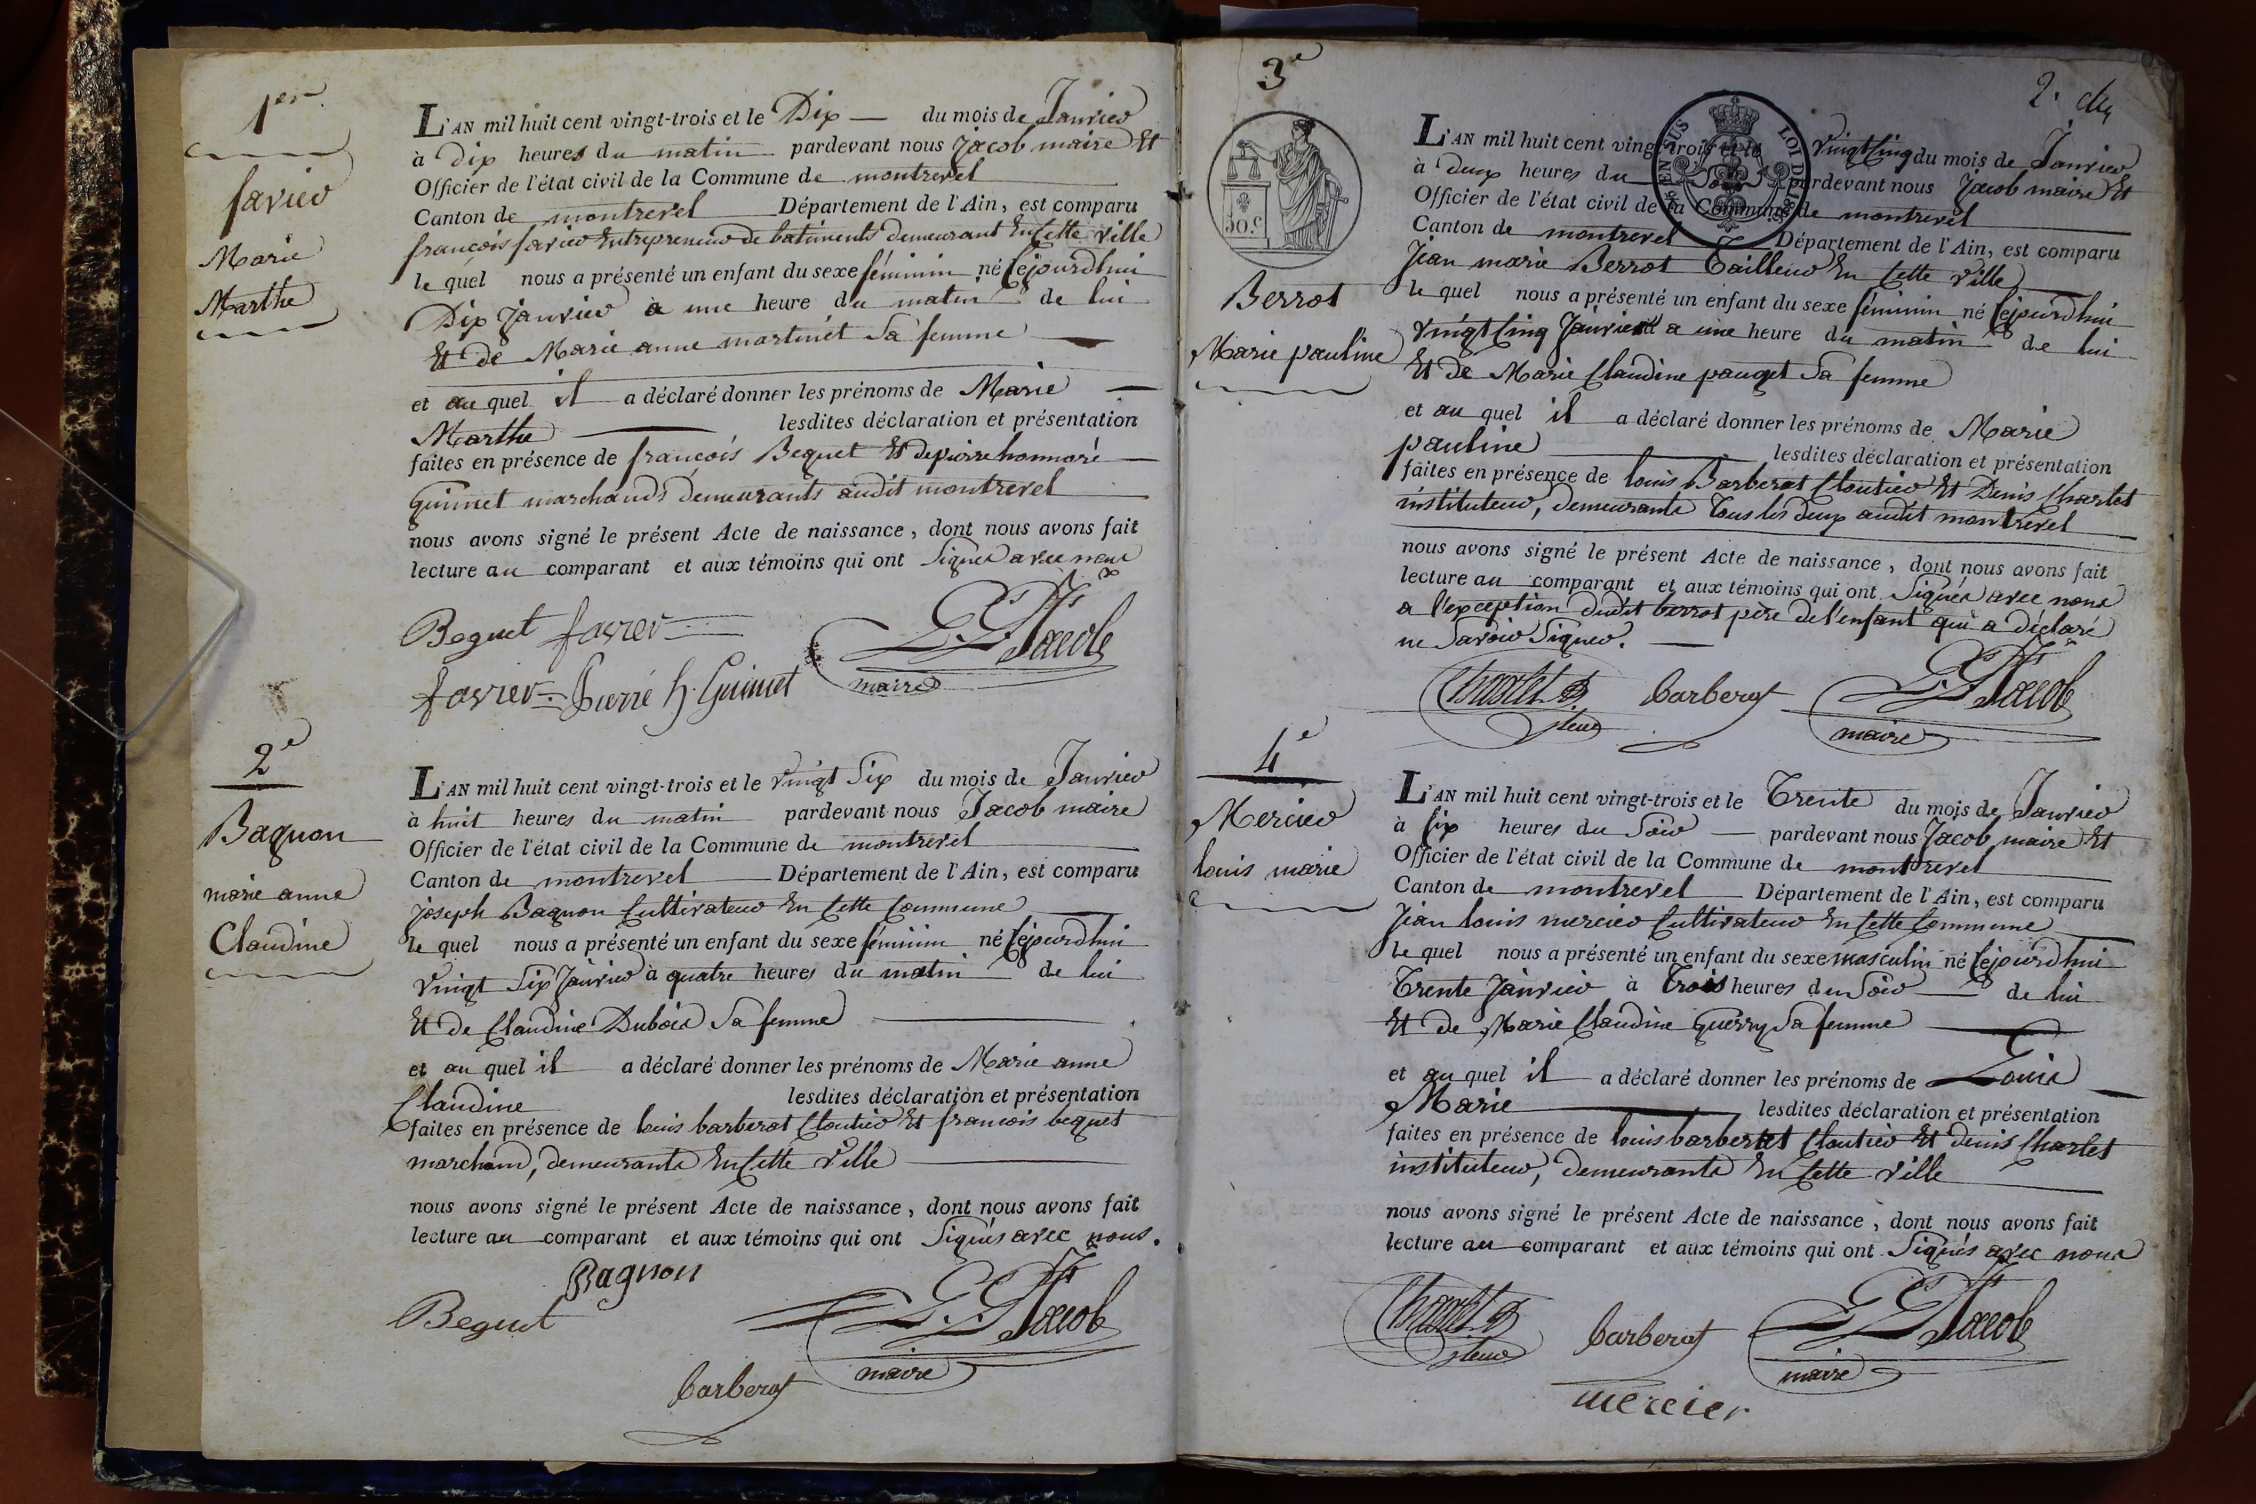 1er
favier
Marie
Marthe
L'AN mil huit cent vingt-trois et le Dix du mois de Janvier
à dix heures du matin pardevant nous Jacob maire Et
Officier de l'état civil de la Commune de montrevel
Canton de montrevel Département de l'Ain, est comparu
françois favier Entrepreneur de batiments demeurant En cette ville
le quel nous a présenté un enfant du sexe féminin né cejourdhui
Dix Janvier a une heure du matin de lui
Et de Marie anne martinet Sa femme
et au quel il a déclaré donner les prénoms de Marie
Marthe lesdites déclaration et présentation
faites en présence de francois Bequet Et de pierre honnoré
Guimet marchands demeurants audit montrevel
nous avons signé le présent Acte de naissance, dont nous avons fait
lecture au comparant et aux témoins qui ont Signés avec nous
Bequet favrer
Jacob
favrer Pierre h. Guimet
maire
2e
Bagnon
marie anne
Claudine
L'AN mil huit cent vingt-trois et le vingt Six du mois de Janvier
à huit heures du matin pardevant nous Jacob maire
Officier de l'état civil de la Commune de montrevel
Canton de montrevel Département de l'Ain, est comparu
joseph Bagnon Cultivateur En Cette Commune
le quel nous a présenté un enfant du sexe féminin né cejourdhui
vingt Six Janvier à quatre heures du matin de lui
Et de Claudine Dubois Sa femme
et au quel il a déclaré donner les prénoms de Marie anne
Claudine lesdites déclaration et présentation
faites en présence de louis barberot Cloutier Et francois bequet
marchand, demeurants En Cette ville
nous avons signé le présent Acte de naissance, dont nous avons fait
lecture au comparant et aux témoins qui ont Signés avec nous.
Bagnon
Bequet
Jacob
barberot
maire
3e
2.
50 c.
Berrot
Marie pauline
L'AN mil huit cent vingt-trois et le vingt Cinq du mois de Janvier
à deux heures du Soir pardevant nous Jacob maire Et
Officier de l'état civil de la Commune de montrevel
Canton de montrevel Département de l'Ain, est comparu
Jean marie Berrot Tailleur En Cette ville
le quel nous a présenté un enfant du sexe féminin né cejourdhui
vingt Cinq Janvier a une heure du matin de lui
Et de Marie Claudine pauget Sa femme
et au quel il a déclaré donner les prénoms de Marie
pauline lesdites déclaration et présentation
faites en présence de louis Barberot Cloutier Et Denis Charlet
instituteur, demeurants Tous les deux audit montrevel
nous avons signé le présent Acte de naissance, dont nous avons fait
lecture au comparant et aux témoins qui ont Signés avec nous
a l'exception dudit berrot père de l'enfant qui a déclaré
ne Savoir Signer.
Charlet
barberot
Jacob
maire
4e
Mercier
louis marie
L'AN mil huit cent vingt-trois et le Trente du mois de Janvier
à six heures du Soir pardevant nous Jacob maire Et
Officier de l'état civil de la Commune de montrevel
Canton de montrevel Département de l'Ain, est comparu
Jean louis mercier Cultivateur En Cette Commune
le quel nous a présenté un enfant du sexe masculin né cejourdhui
Trente Janvier à Trois heures du Soir de lui
Et de Marie Claudine Guerry Sa femme
et au quel il a déclaré donner les prénoms de Louis
Marie lesdites déclaration et présentation
faites en présence de louis barberot Cloutier Et denis Charlet
instituteur, demeurants En Cette ville
nous avons signé le présent Acte de naissance, dont nous avons fait
lecture au comparant et aux témoins qui ont Signés avec nous
Charlet
barberot
Jacob
maire
mercier